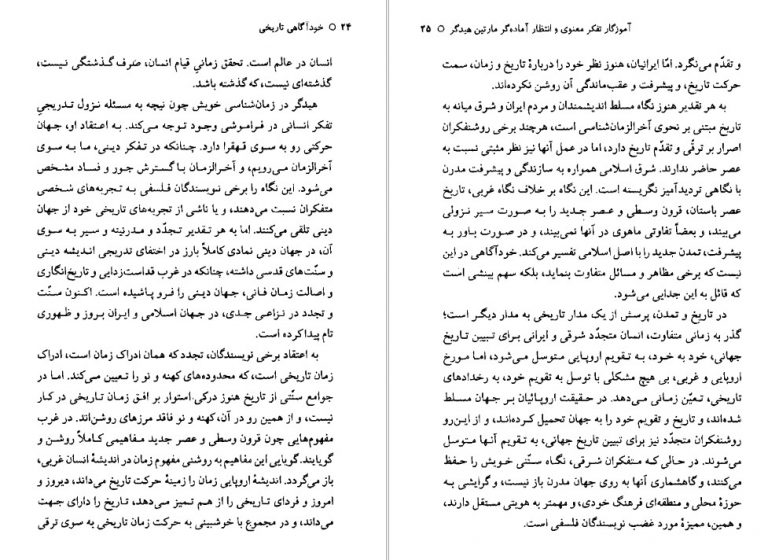 ۲۴ ○ خودآگاهی تاریخی
انسان در عالم است. تحقق زمانیِ قیام انسان، صَرف گذشتگی نیست،
گذشته‌ای نیست، که گذشته باشد.
هیدگر در زمان‌شناسی خویش چون نیچه به مسئله نزول تدریجیِ
تفکر انسانی در فراموشی وجود توجه می‌کند. به اعتقاد او، جهان
حرکتی رو به سوی قهقرا دارد. چنانکه در تفکر دینی، ما به سوی
آخرالزمان می‌رویم، و آخرالزمان با گسترش جور و فساد مشخص
می‌شود. این نگاه را برخی نویسندگان فلسفی به تجربه‌های شخصی
متفکران نسبت می‌دهند، و یا ناشی از تجربه‌های تاریخی خود از جهان
دینی تلقی می‌کنند. اما به هر تقدیر تجدّد و مدرنیته و سیر به سوی
آن، در جهان دینی نمادی کاملاً بارز در اختفای تدریجی اندیشه دینی
و سنّت‌های قدسی داشته، چنانکه در غرب قداست‌زدایی و تاریخ‌انگاری
و اصالت زمان فانی، جهان دینی را فرو پاشیده است. اکنون سنت
و تجدد در نزاعی جدی، در جهان اسلامی و ایران بروز و ظهوری
تام پیدا کرده است.
به اعتقاد برخی نویسندگان، تجدد که همان ادراک زمان است، ادراک
زمان تاریخی است، که محدوده‌های کهنه و نو را تعیین می‌کند. اما در
جوامع سنّتی از تاریخ هنوز درکی استوار بر افق زمان تاریخی در کار
نیست، و از همین رو در آن، کهنه و نو فاقد مرزهای روشن‌اند. در غرب
مفهوم‌هایی چون قرون وسطی و عصر جدید مفاهیمی کاملاً روشن و
گویایند. گویایی این مفاهیم به روشنی مفهوم زمان در اندیشۀ انسان غربی،
می‌گردد. اندیشۀ اروپایی زمان را زمینۀ حرکت تاریخ می‌داند، دیروز و
امروز و فردای تاریخی را از هم تمیز می‌دهد، تاریخ را دارای جهت
می‌داند، و در مجموع با خوشبینی به حرکت زمان تاریخی به سوی ترقی
آموزگار تفکر معنوی و انتظار آماده‌گر مارتین هیدگر ○ ۲۵
و تقدّم می‌نگرد. امّا ایرانیان، هنوز نظر خود را دربارۀ تاریخ و زمان، سمت
حرکت تاریخ، و پیشرفت و عقب‌ماندگی آن روشن نکرده‌اند.
به هر تقدیر هنوز نگاه مسلط اندیشمندان و مردم ایران و شرق میانه به
تاریخ مبتنی بر نحوی آخرالزمان‌شناسی است، هرچند برخی روشنفکران
اصرار بر ترقّی و تقدّم تاریخ دارد، اما در عمل آنها نیز نظر مثبتی نسبت به
عصر حاضر ندارند. شرق اسلامی همواره به سازندگی و پیشرفت مدرن
با نگاهی تردیدآمیز نگریسته است. این نگاه بر خلاف نگاه غربی، تاریخ
عصر باستان، قرون وسطی و عصر جدید را به صورت سیر نزولی
می‌بیند، و بعضاً تفاوتی ماهوی در آنها نمی‌بیند، و در صورت باور به
پیشرفت، تمدن جدید را با اصل اسلامی تفسیر می‌کند. خودآگاهی در این
نیست که برخی مظاهر و مسائل متفاوت بنماید، بلکه سهم بینشی است
که قائل به این جدایی می‌شود.
در تاریخ و تمدن، پرسش از یک مدار تاریخی به مدار دیگر است؛
گذر به زمانی متفاوت، انسان متجدّد شرقی و ایرانی برای تبیین تاریخ
جهانی، خود به خود، به تقویم اروپایی متوسل می‌شود، اما مورخ
اروپایی و غربی، بی هیچ مشکلی با توسل به تقویم خود، به رخدادهای
تاریخی، تعیّن زمانی می‌دهد. در حقیقت اروپائیان بر جهان مسلط
شده‌اند، و تاریخ و تقویم خود را به جهان تحمیل کرده‌اند، و از این‌رو
روشنفکران متجدّد نیز برای تبیین تاریخ جهانی، به تقویم آنها متوسل
می‌شوند. در حالی که متفکران شرقی، نگاه سنّتی خویش را حفظ
می‌کنند، و گاهشماری آنها به روی جهان مدرن باز نیست، و گرایشی به
حوزۀ محلی و منطقه‌ای فرهنگ خودی، و مهمتر به هویتی مستقل دارند،
و همین، ممیزۀ مورد غضب نویسندگان فلسفی است.